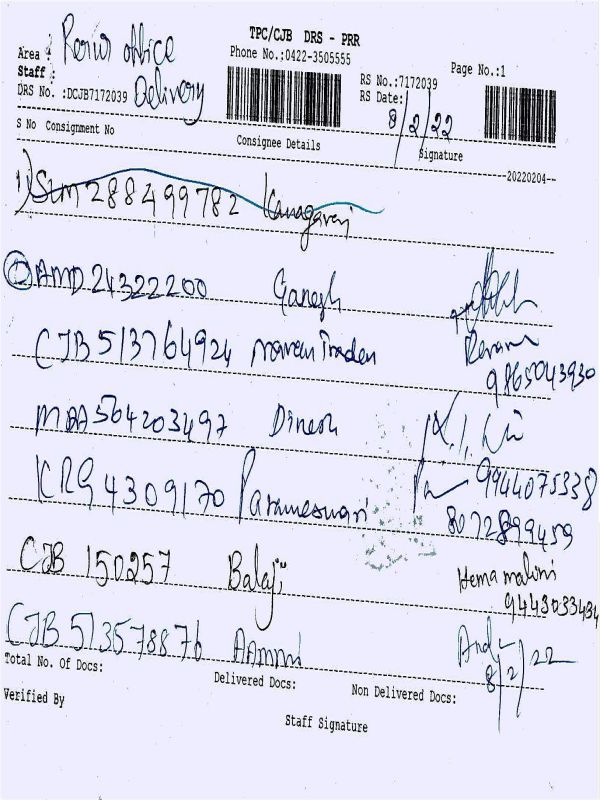 TPC/CJB DRS - PRR
Phone No.:0422-3505555
Area : Perur office
Staff :
DRS No. :DCJB7172039 Delivery
RS No.:7172039
RS Date: 8/2/22
Page No.:1
S No Consignment No Consignee Details Signature
20220204
1) 288499782
AMD 24322200 Ganesh
CJB 513764924 naveen Traders
9865043930
MAA 564203497 Dinesh
KRG 4309170 Parameswari 9944075338
8072899459
CJB 150257 Balaji Hema malini
9443033434
CJB 513578876
8/2/22
Total No. Of Docs: Delivered Docs: Non Delivered Docs:
Verified By
Staff Signature